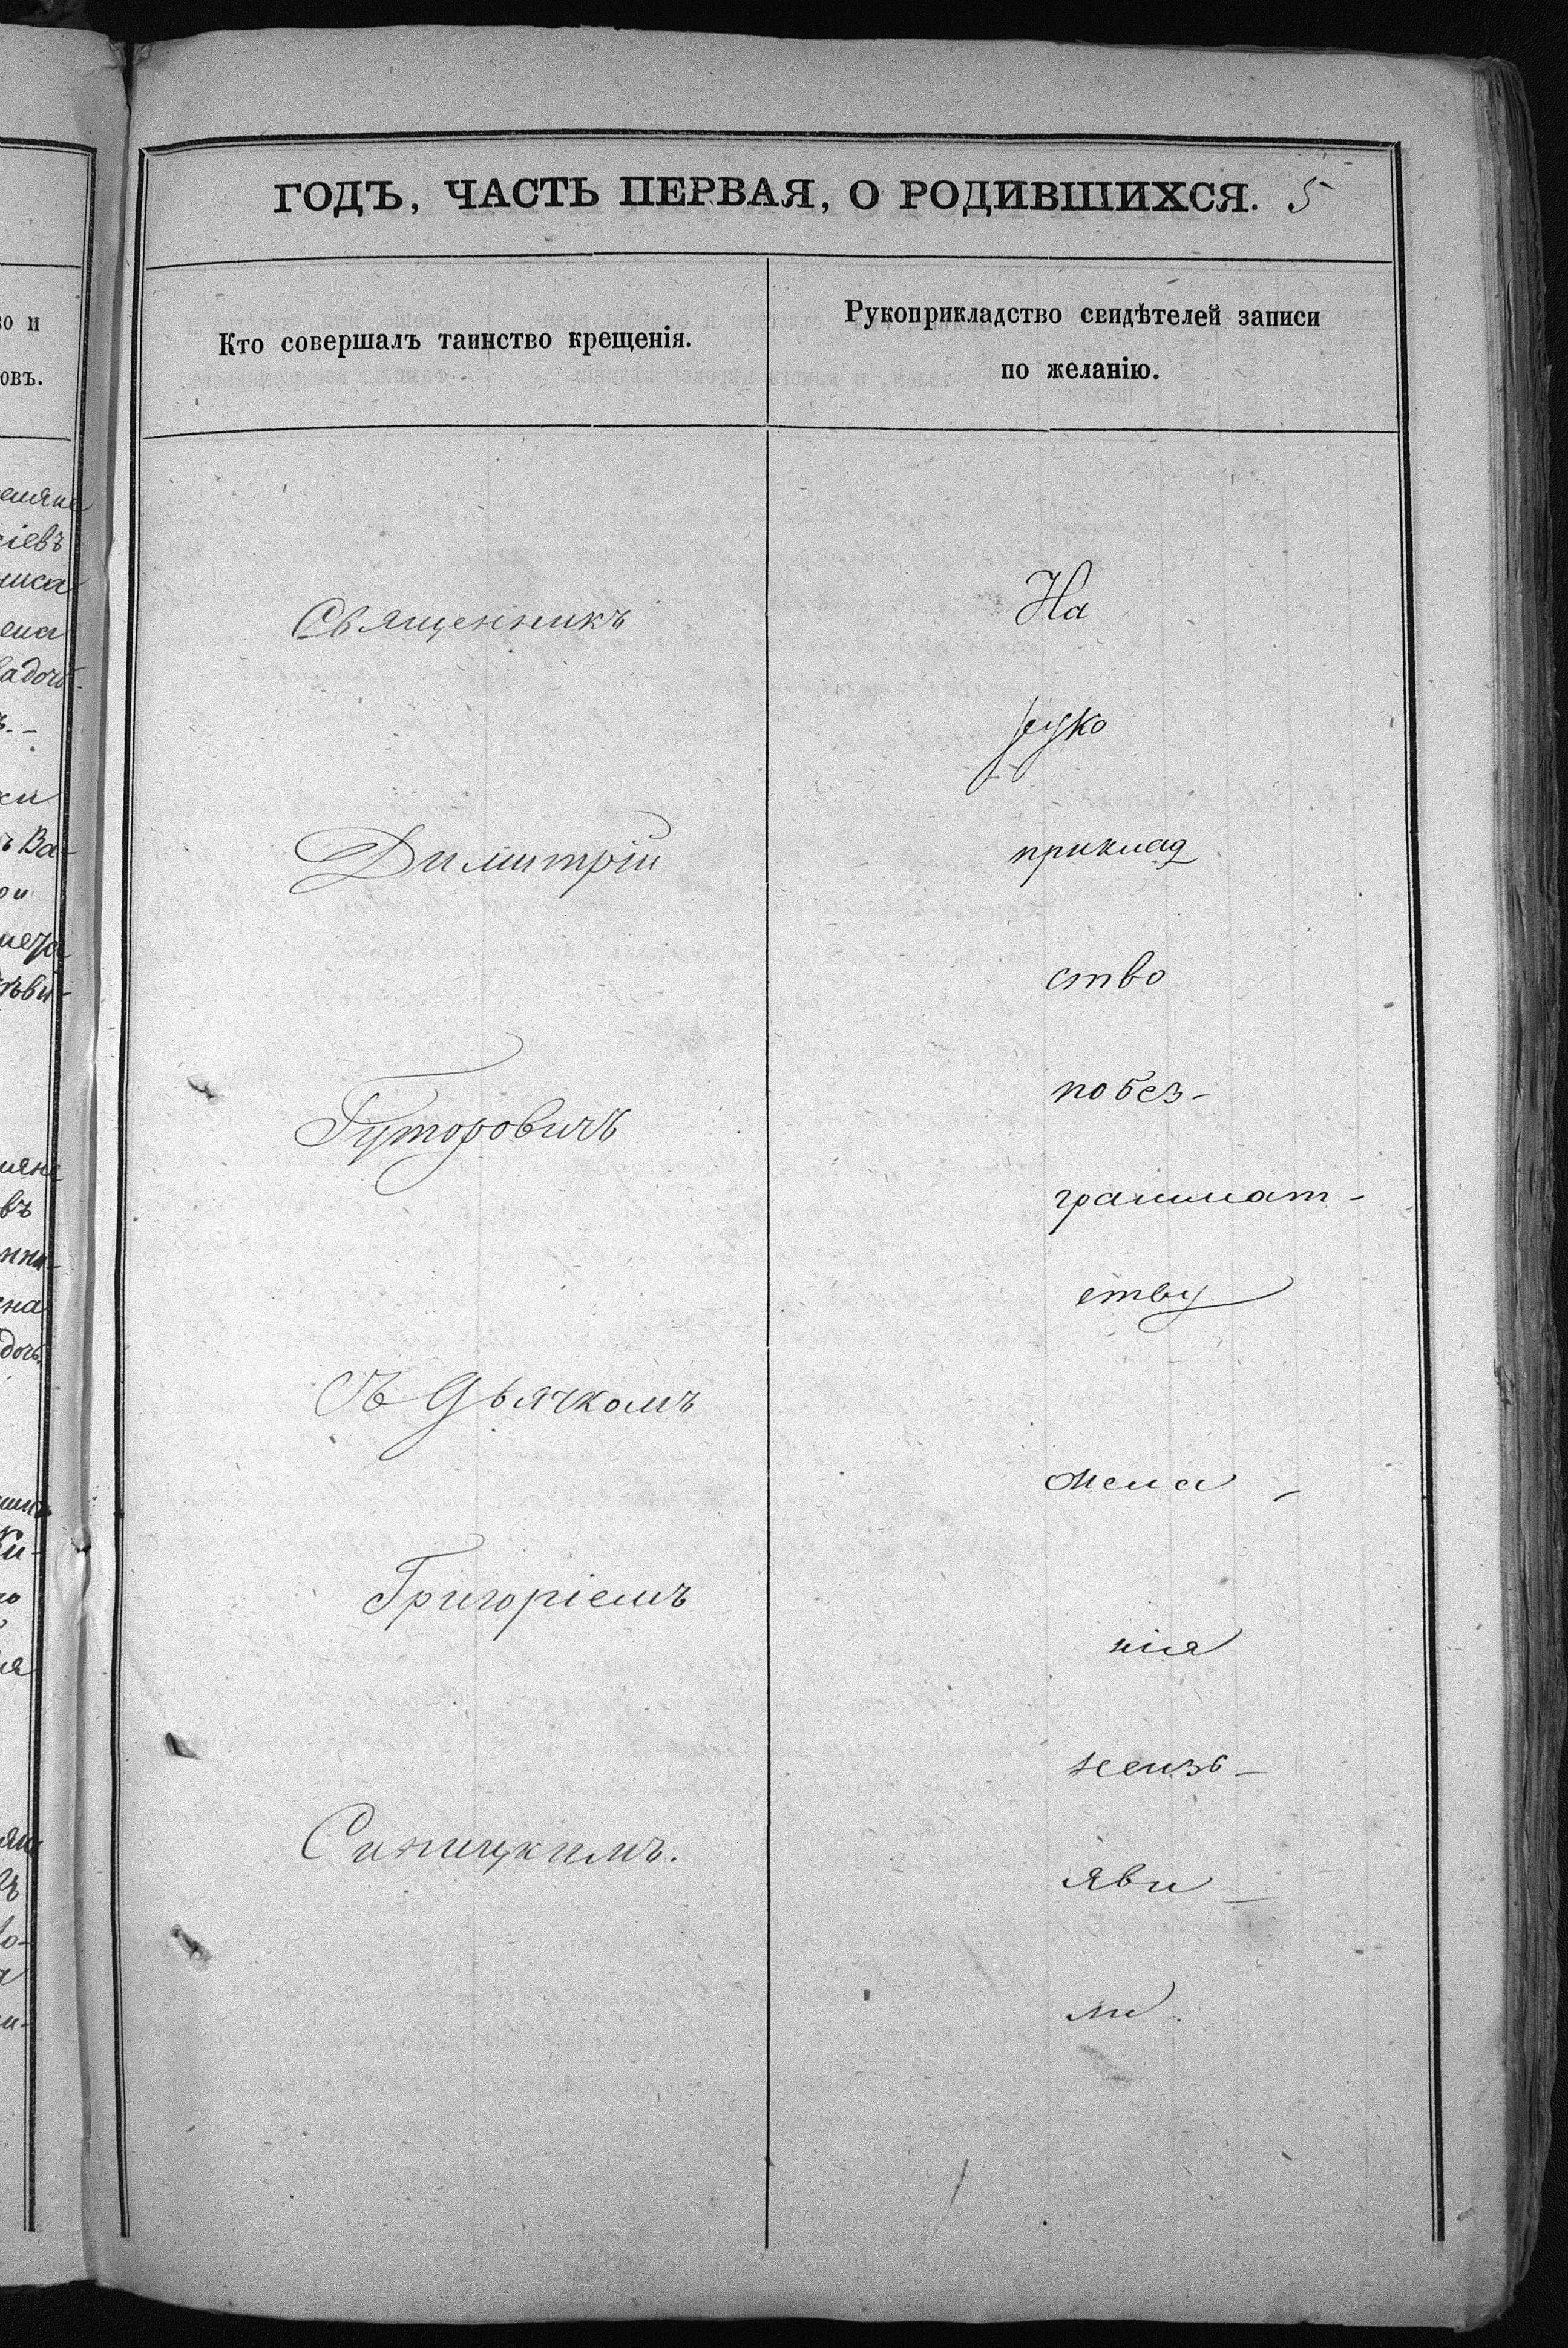 ГОДЪ, ЧАСТЬ ПЕРВАЯ, О РОДИВШИХСЯ. 5
Кто совершалъ таинство крещенія.
Рукоприкладство свидѣтелей записи
по желанію.
Священникъ
Димитрій
Гуторовичъ
Съ Дьячкомъ
Григоріемъ
Синицкимъ.
На
руко
приклад
ство
по без-
граммат-
ству
жела-
нія
неизъ-
яви-
ли.
о и
овъ.